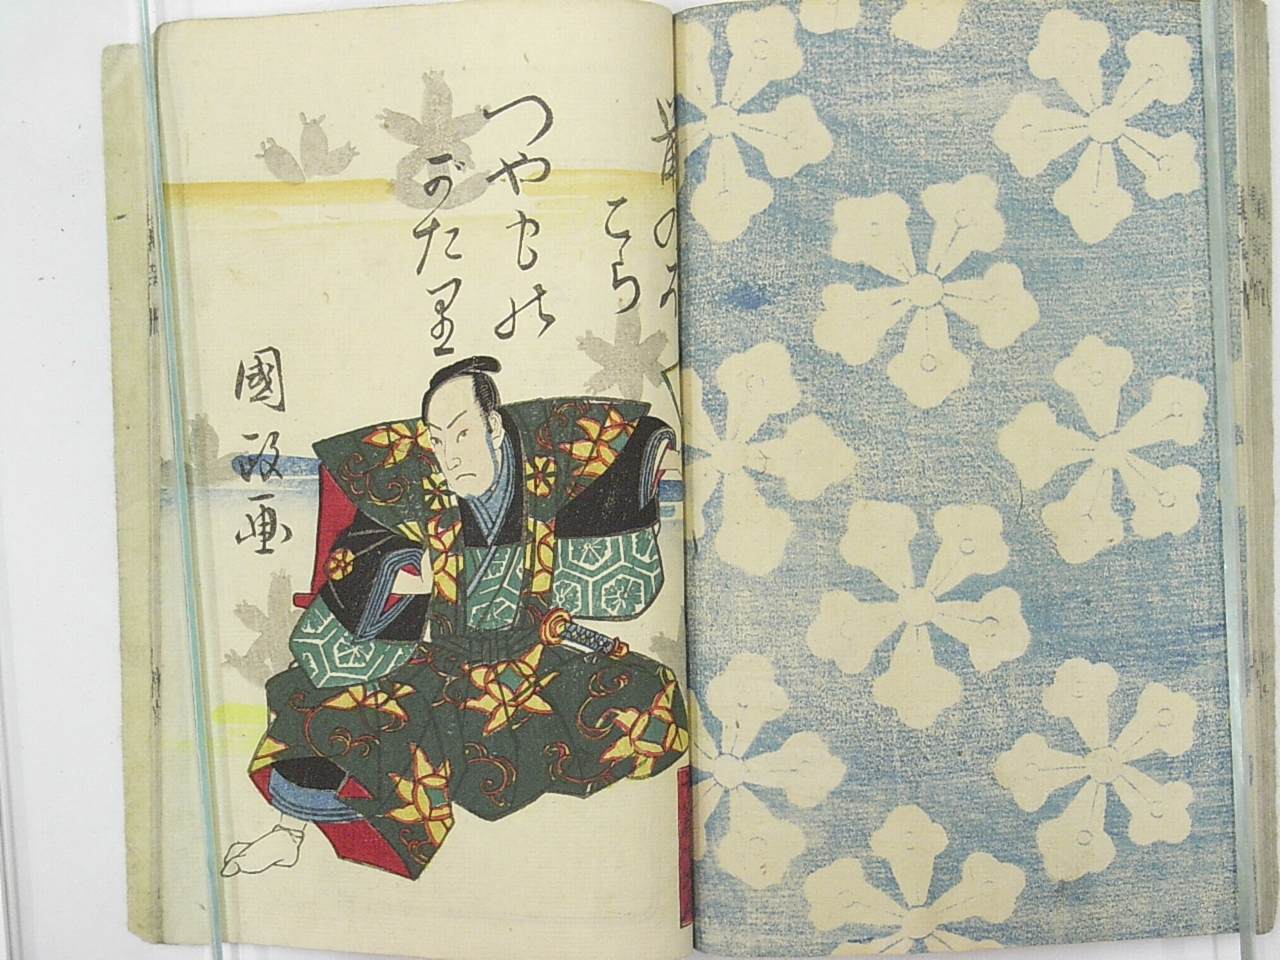 こら
つやもの
がたり
國政画